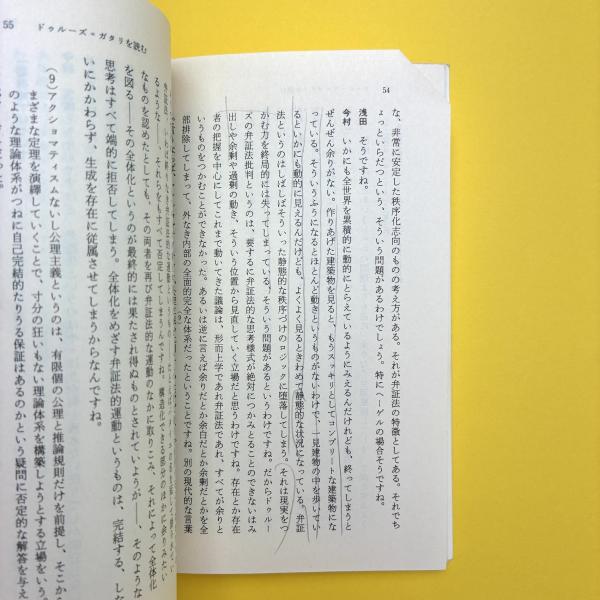 54
な、非常に安定した秩序化志向のものの考え方がある。それが弁証法の特徴としてある。それでち
ょっといらだつという、そういう問題があるわけでしょう。特にヘーゲルの場合そうですね。
浅田 そうですね。
今村 いかにも全世界を累積的に動的にとらえているようにみえるんだけれども、終ってしまうと
ぜんぜん余りがない。作りあげた建築物を見ると、もうスッキリとしてコンプリートな建築物にな
っている。そういうふうになるとほとんど動きというものがないわけで、一見建物の中を歩いてい
るといかにも動的に見えるんだけども、よくよく見るときわめて静態的な状況になっている。弁証
法というのはしばしばそういった静態的な秩序づけのロジックに堕落してしまう。それは現実をつ
かむ力を終局的には失ってしまっている、そういう問題があるというわけです。だからドゥルー
ズの弁証法批判というのは、要するに弁証法的な思考様式が絶対につかみとることのできないはみ
出しや余剰や過剰の動き、そういう位置から見直していく立場だと思うわけですね。存在とか存在
者の把握を中心にしてこれまで動いてきた議論は、形而上学であれ弁証法であれ、すべてが余りと
いうものをつかむことができなかった。あるいは逆に言えば余りだとか余白だとか余剰だとかを全
部排除してしまって、外なき内部の全面的完全な体系だったということですね。別の現代的な言葉
55 ドゥルーズ=ガタリを読む
るような、それらをもすべて否定してしまうんですね。構造化できるもの
なものを認めたとしても、その両者を再び弁証法的な運動のなかに取りこみ、それによって全体化
を図る――その全体化というのが最終的には果たされ得ぬものとされていようが――、そのような
思考はすべて端的に拒否してしまう。全体化をめざす弁証法的運動というものは、完結する、しな
いにかかわらず、生成を存在に従属させてしまうからなんですね。
(9) アクショマティスムないし公理主義というのは、有限個の公理と推論規則だけを前提し、そこから
まざまな定理を演繹していくことで、寸分の狂いもない理論体系を構築しようとする立場をいう。
のような理論体系がつねに自己完結的たりうる保証はあるのかという疑問に否定的な解答を与え